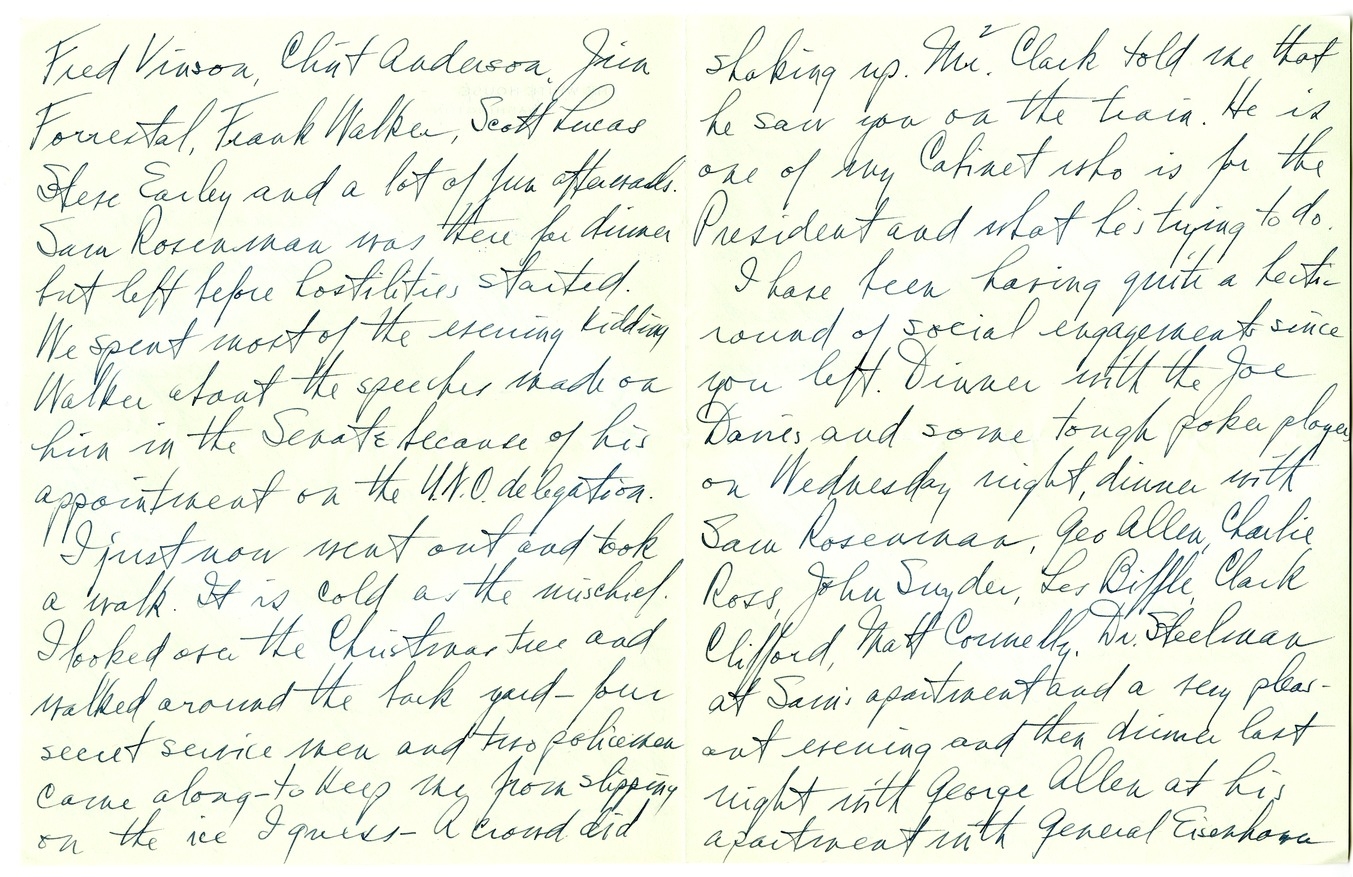 Fred Vinson, Clint Anderson, Jim
Forrestal, Frank Walker, Scott Lucas
Steve Earley and a lot of fun afterwards.
Sam Rosenman was there for dinner
but left before hostilities started.
We spent most of the evening kidding
Walker about the speeches made on
him in the Senate because of his
appointment on the U.N.O. delegation.
I just now went out and took
a walk. It is cold as the mischief.
I looked over the Christmas tree and
walked around the back yard – four
secret service men and two policemen
came along – to keep me from slipping
on the ice I guess – A crowd did
shaking up. Mr. Clark told me that
he saw you on the train. He is
one of my Cabinet who is for the
President and what he's trying to do.
I have been having quite a hectic
round of social engagements since
you left. Dinner with the Joe
Davies and some tough poker players
on Wednesday night, dinner with
Sam Rosenman, Geo Allen, Charlie
Ross, John Snyder, Les Biffle, Clark
Clifford, Matt Connelly, Dr. Steelman
at Sam's apartment and a very pleas-
ant evening and then dinner last
night with George Allen at his
apartment with General Eisenhower